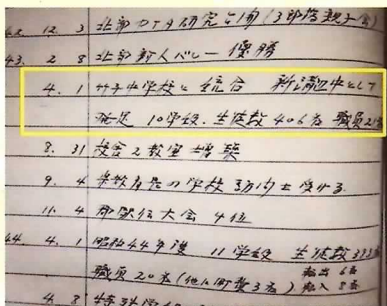 42. 12. 3 北部 研究公開(3部落親子会)
43. 2 8 北部新人バレー 優勝
4. 1 竹子中学校と統合 新溝辺中として
発足 10学級、生徒数 406名 職員21名
8. 31 校舎2教室増築
9. 4 学校訪問を受ける
11. 4 郡駅伝大会 4位
44. 4. 1 昭和44年度 11学級 生徒数383名
職員20名(他に町費3名) 転出 6名
転入 8名
4. 8